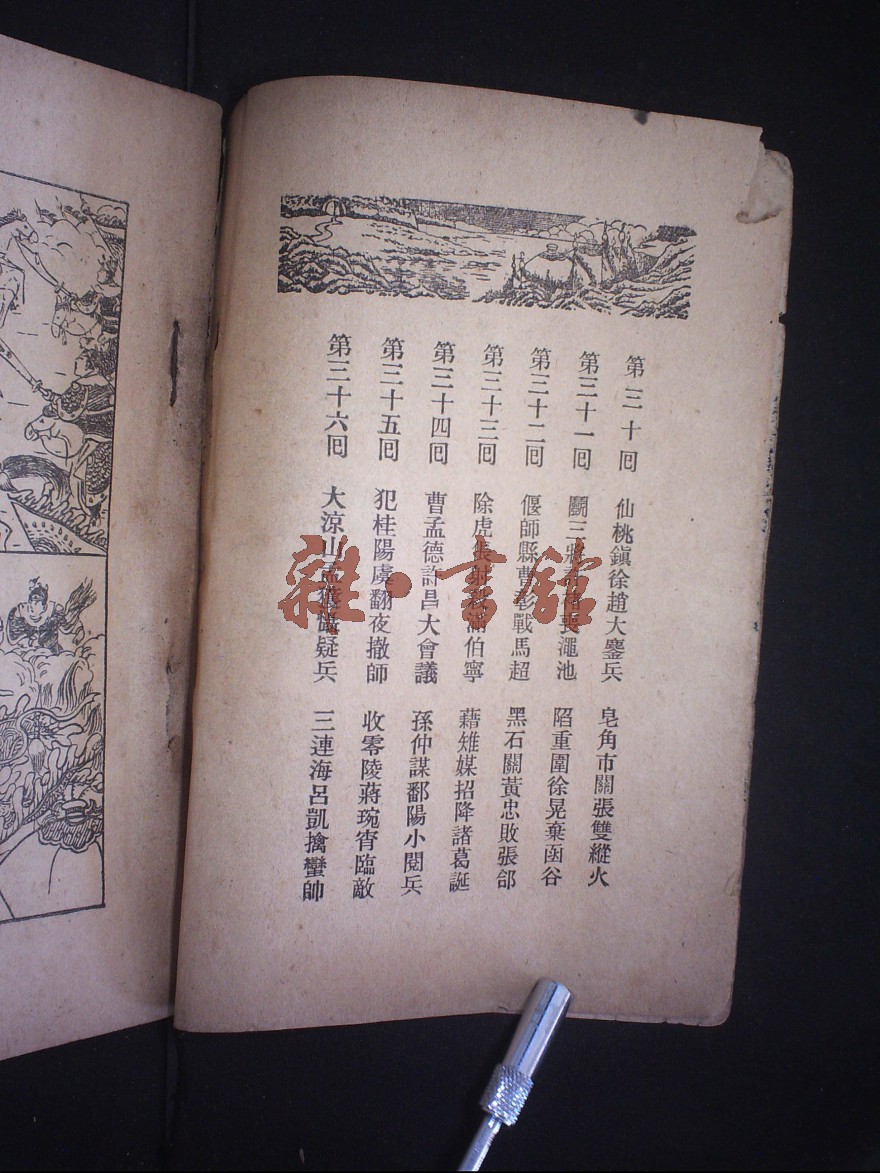 第三十回 仙桃鎭徐趙大鏖兵 皂角市關張雙縱火
第三十一回 鬭三將許褚喪澠池 陷重圍徐晃棄函谷
第三十二回 偃師縣曹彰戰馬超 黑石關黃忠敗張郃
第三十三回 除虎倀射殺滿伯寧 藉雉媒招降諸葛誕
第三十四回 曹孟德許昌大會議 孫仲謀鄱陽小閱兵
第三十五回 犯桂陽虞翻夜撤師 收零陵蔣琬宵臨敵
第三十六回 大涼山孟獲懾疑兵 三連海呂凱擒蠻帥
雜·書館